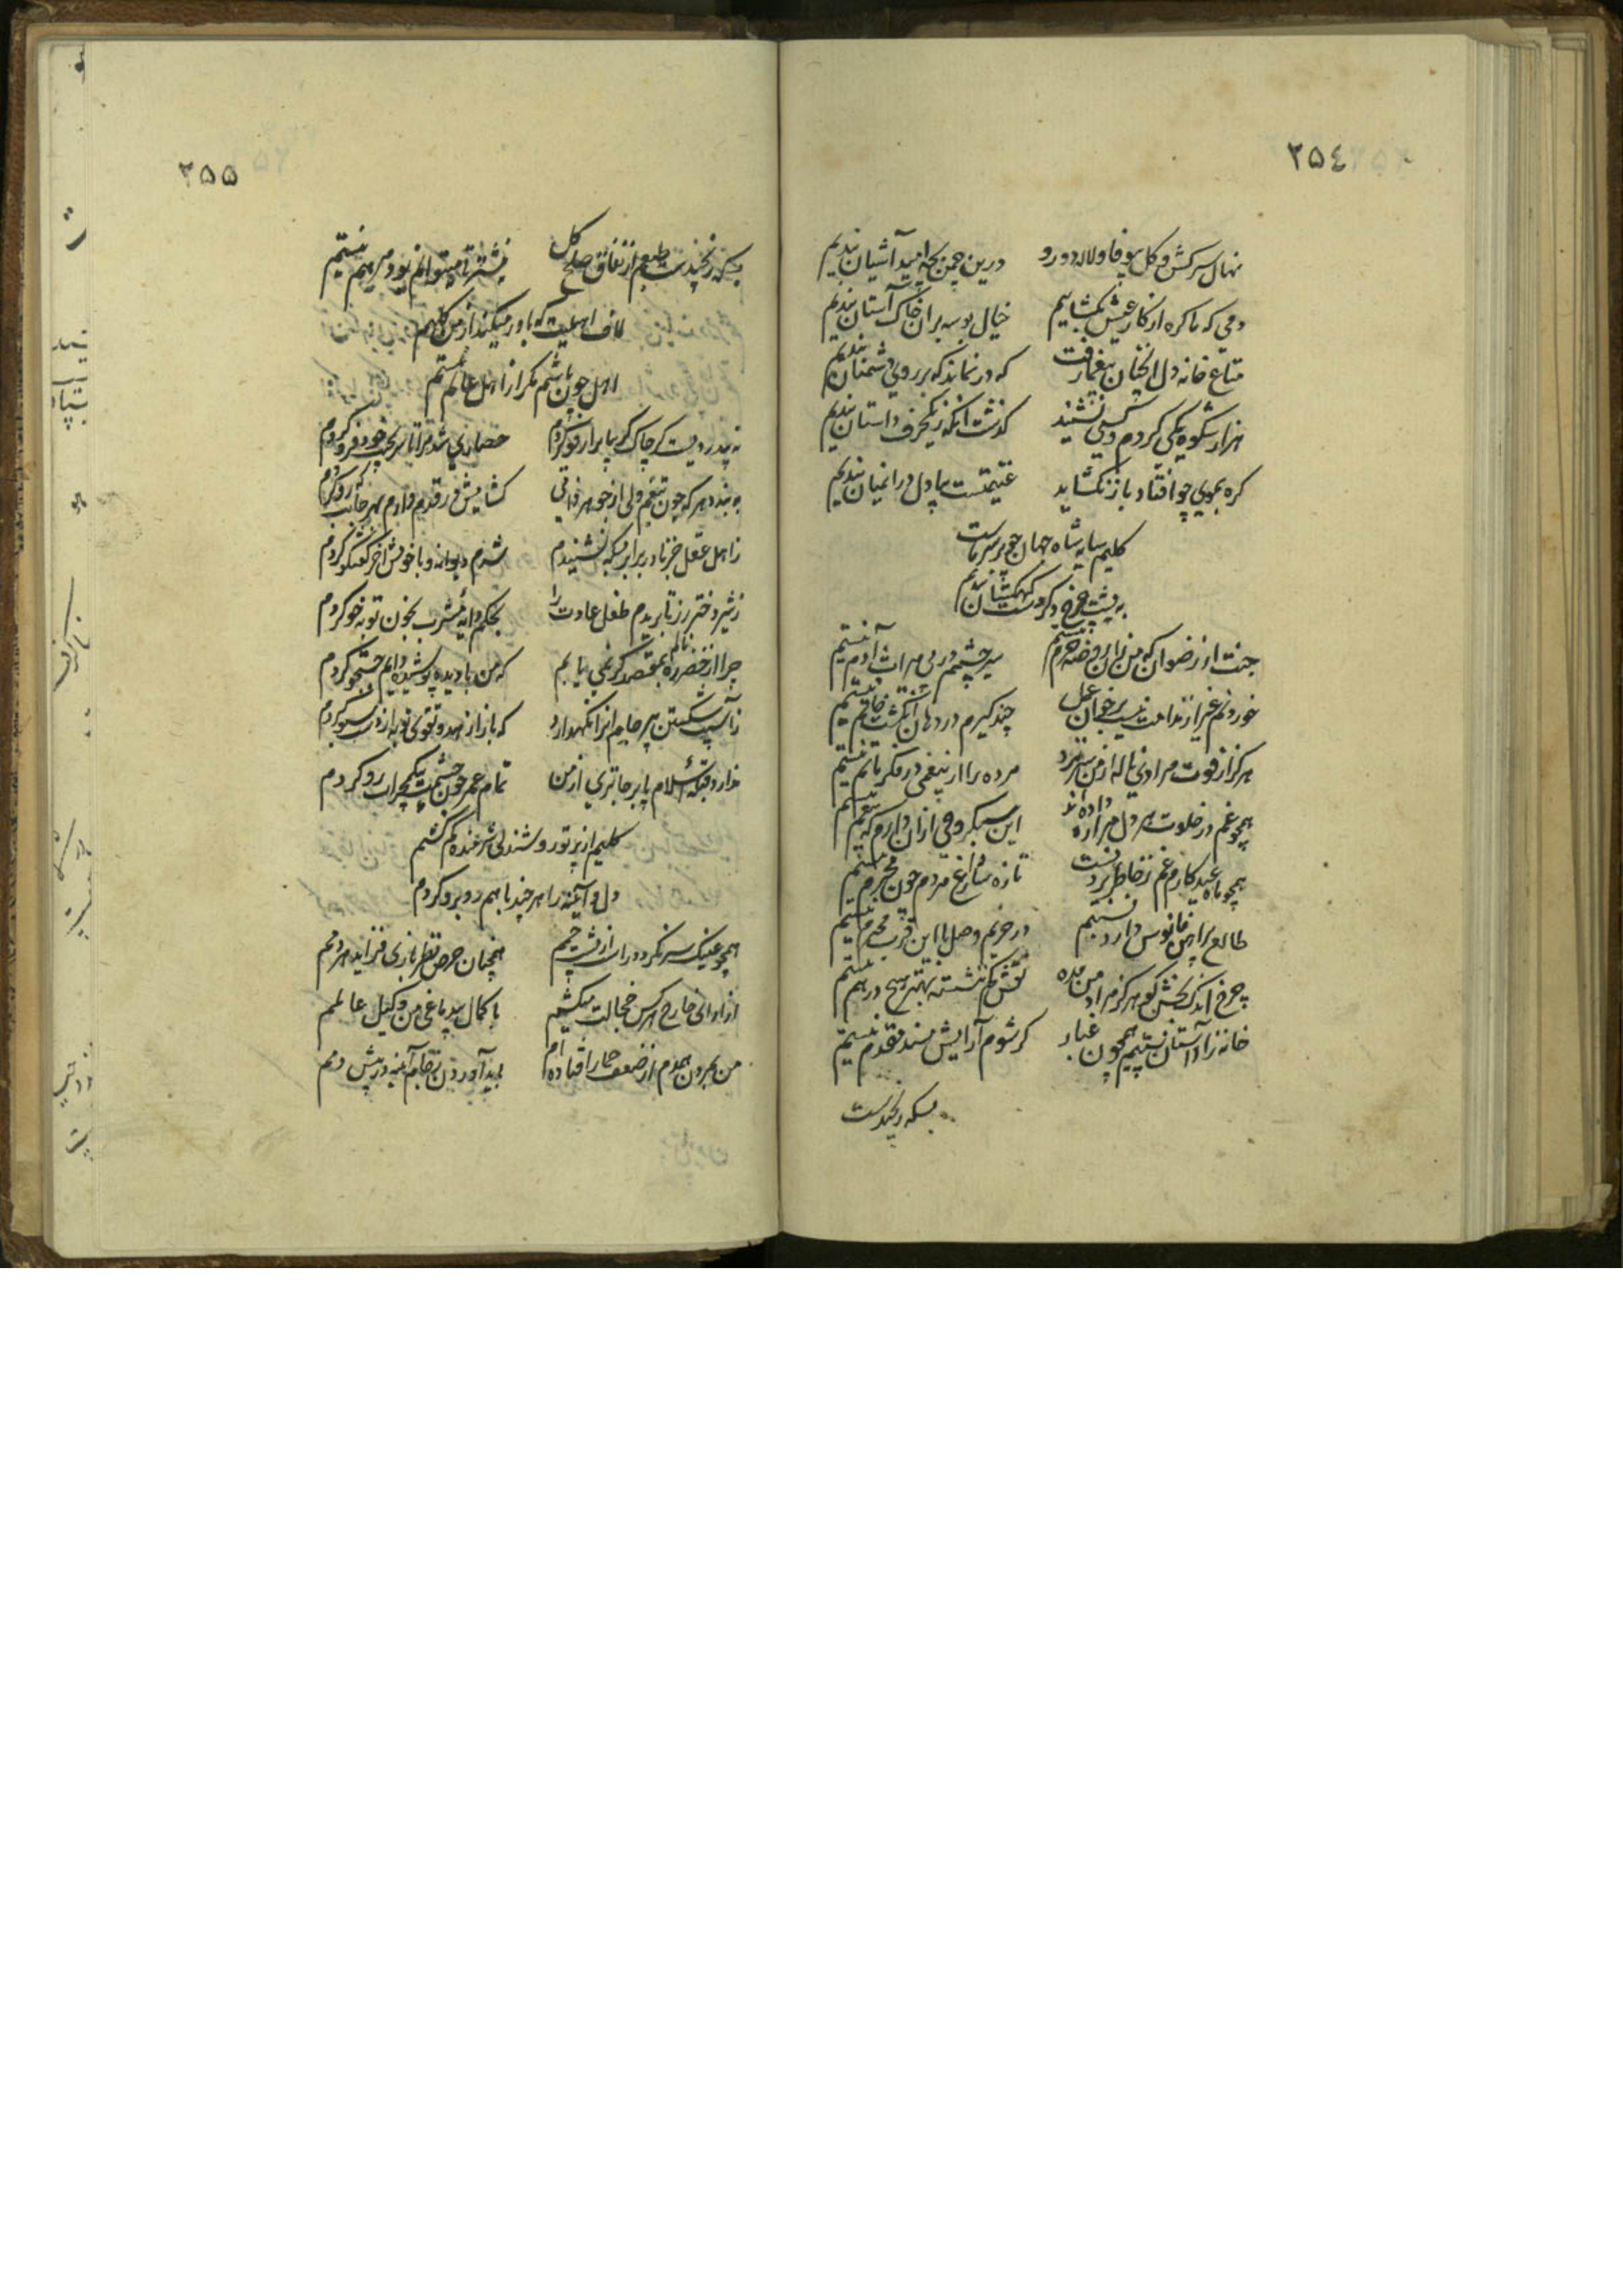 ٢٥٤
نهال سرکش و گل بیوفا و لاله دورو درین چمن بچه امید آشیان بندیم
دمی که ما کره از کار عیش بگشاییم خیال بوسه بران خاک آستان بندیم
متاع خانه دل آنچنان بیغما رفت که در نماند که بر روی دشمنان بندیم
هزار شکوه یکی کردم و کسی نشنید گذشت آنکه زیکحرف داستان بندیم
کره بموی چو افتاد باز نگشاید غنیمتست بیا دل درانمیان بندیم
کلیم سایه شاه جهان چو بر سر ماست
به پشت چرخ دگر دست کهکشان بندیم
جنت از رضوان که من زان روضه خرم نیستم سیر چشمم در پی میراث آدم نیستم
خوردنم غیر از ندامت نیست برخوان عمل چند گیرم در دهان انگشت خاتم نیستم
هرگز از فوت مرادی ناله از من سر نزد مرده را از بیغمی در فکر ماتم نیستم
همچو غم در خلوت هر دل مرا ره داده اند این سبکروحی ازان دارم که بیغم نیستم
همچو ماه عید کارم غم ز خاطر بردنست تازه ساز داغ مردم چون محرم نیستم
طالع پیراهن فانوس دارد نیستم در حریم وصل با این قرب محرم نیستم
چرخ اندک بخش گو هرگز مراد من مده نقش کم ننشسته بهتر هیچ درهم نیستم
خانه زاد آستان نیستیم همچون غبار کر شوم آرایش مسند مقدم نیستم
بسکه رنجیدست
٢٥٥
بسکه رنجیدست طبعم از نفاق صلح کل نیشتر تا میتوانم بود مرهم نیستم
لاف اهلیت که باور میکند از من کلیم
اهل چون باشم مگر از اهل عالم نیستم
نه بیدردیست گر چاک گریبان را رفو کردم حصاری شد مرا تا سر بجیب خود فرو کردم
به بندد هر که چون تیغم ولی از جوهر ذاتی گشایش در قدم دارم بهر جانب که رو کردم
ز اهل عقل حرف دربرابر بسکه نشنیدم شدم دیوانه و با خویش آخر گفتگو کردم
ز شیر دختر رز تا بریدم طفل عادت را بحکم دایه مشرب بخون توبه خو کردم
چرا از خضر ره نالم بمقصد گر نمی یابم که من با دیده پوشیده دایم جستجو کردم
ز آسیب شکستن پیر جامم را نگهدارد که باز از زهد و تقوی توبه از دست سبو کردم
ندارد قبله اسلام پا برجاتری از من تمام عمر چون چشمت بیک محراب رو کردم
کلیم از پرتو روشندلی شرمنده کم گشتم
دل و آئینه را هر چند با هم روبرو کردم
همچو عینک سر نکردد دور ازان پیش چشم همچنان حرص نظر بازی فزاید هر دمم
از ادانی خارج هر کس خجالت میکشم با کمال بیدماغی من وکیل عالمم
من بمردن همدم از ضعف خمار افتاده ام باید آوردن ز جام آینه در پیش دمم